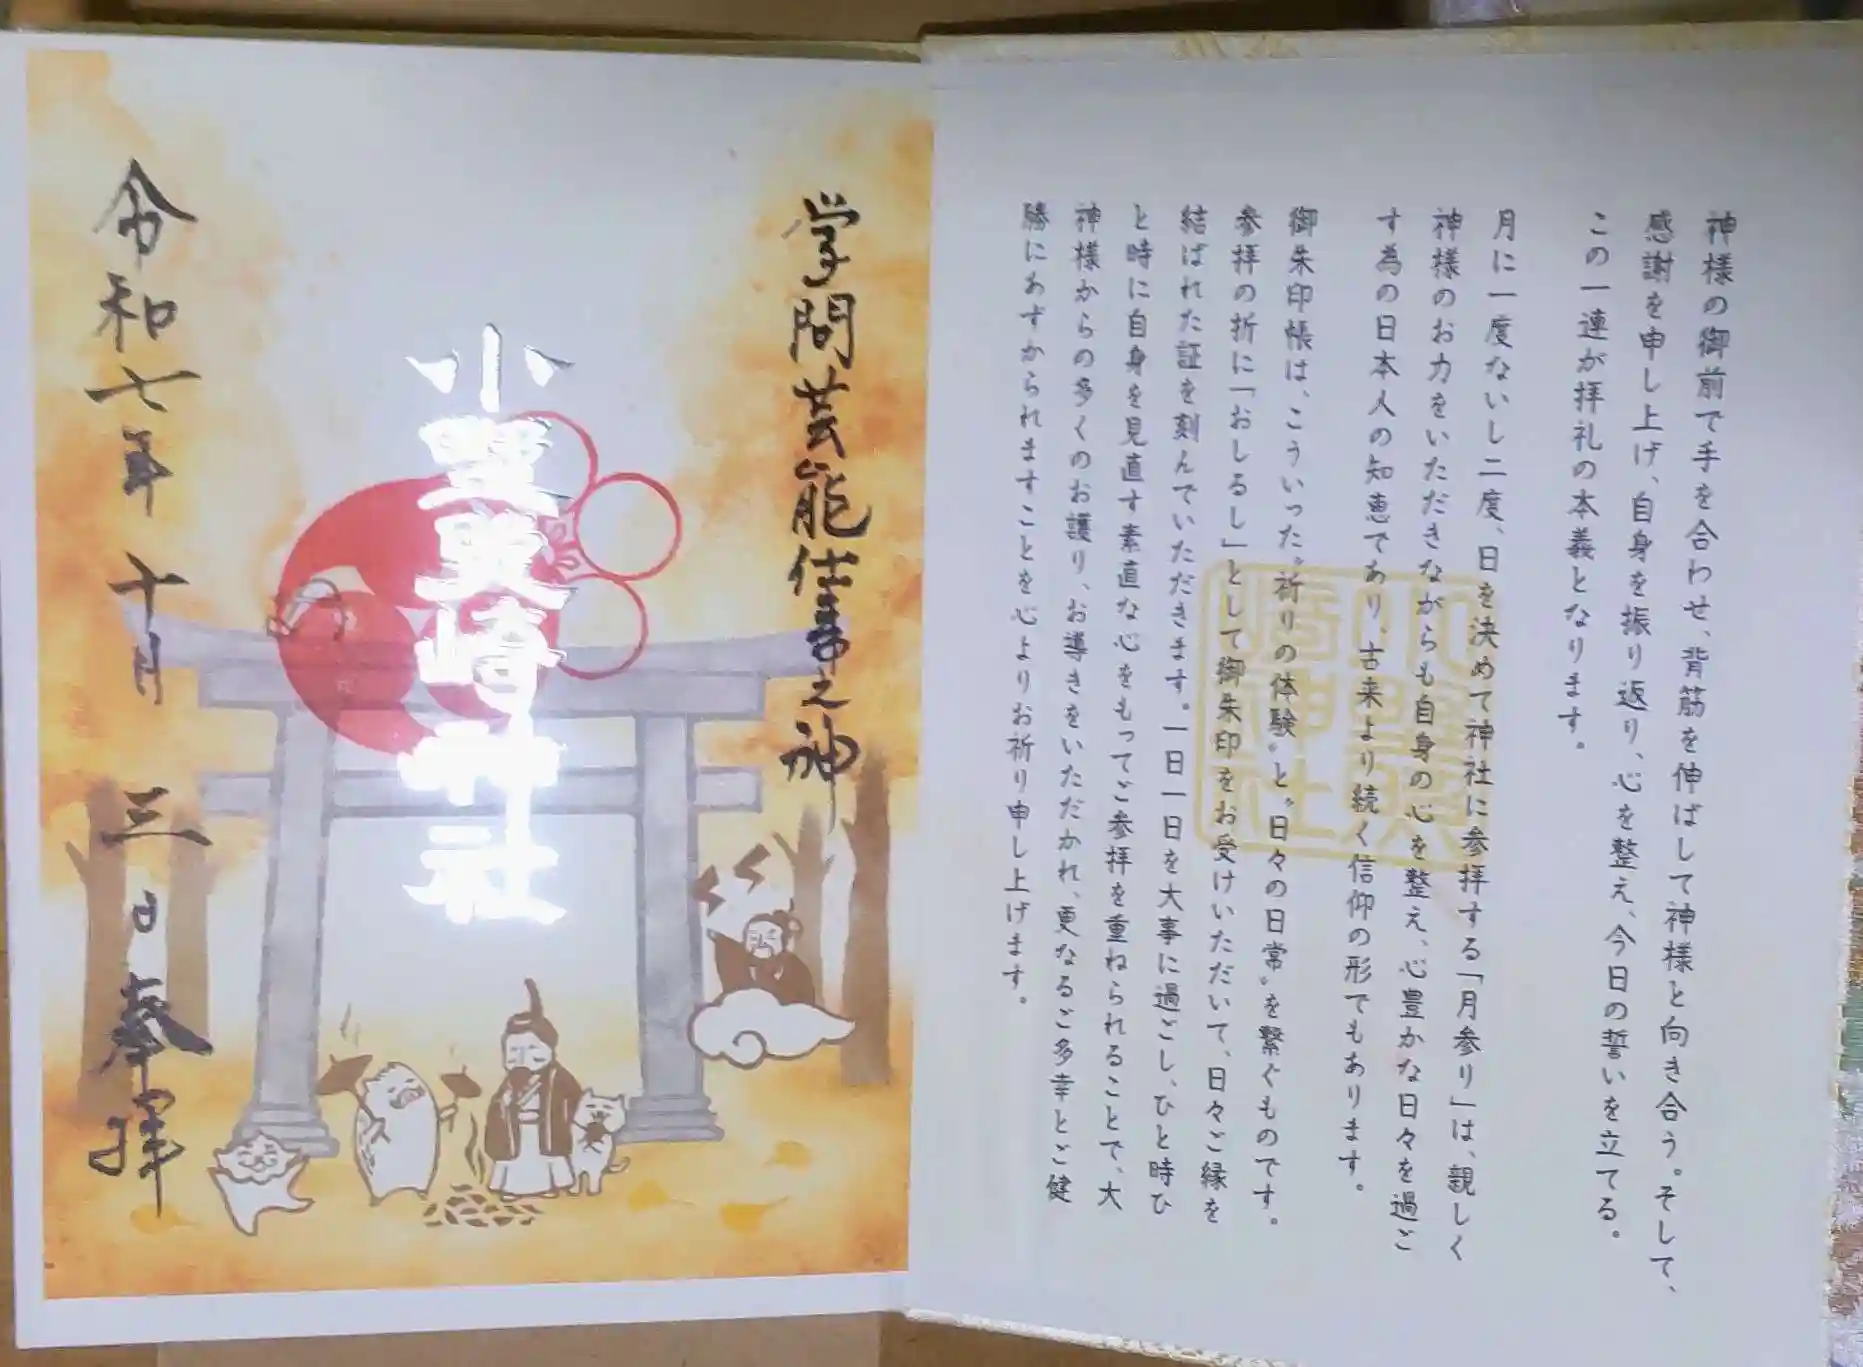 神様の御前で手を合わせ、背筋を伸ばして神様と向き合う。そして、
感謝を申し上げ、自身を振り返り、心を整え、今日の誓いを立てる。
この一連が拝礼の本義となります。
月に一度ないし二度、日を決めて神社に参拝する「月参り」は、親しく
神様のお力をいただきながらも自身の心を整え、心豊かな日々を過ご
す為の日本人の知恵であり、古来より続く信仰の形でもあります。
御朱印帳は、こういった〝祈りの体験〟と〝日々の日常〟を繋ぐものです。
参拝の折に「おしるし」として御朱印をお受けいただいて、日々ご縁を
結ばれた証を刻んでいただきます。一日一日を大事に過ごし、ひと時ひ
と時に自身を見直す素直な心をもってご参拝を重ねられることで、大
神様からの多くのお護り、お導きをいただかれ、更なるご多幸とご健
勝にあずかられますことを心よりお祈り申し上げます。
小野
崎神社
学問芸能仕事之神
小野崎神社
令和七年十月三日奉拝